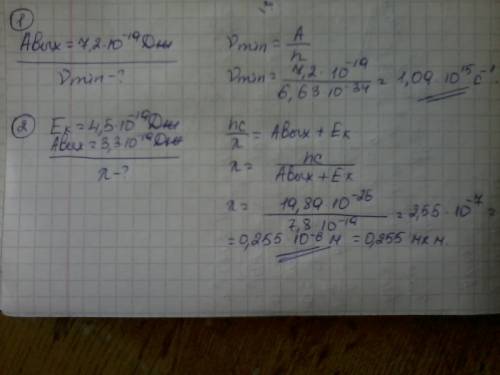 1
Aвых = 7,2·10⁻¹⁹ Дж
νmin - ?
νmin = A/h
νmin = 7,2·10⁻¹⁹ / 6,63·10⁻³⁴ = 1,09·10¹⁵ с⁻¹
2
Eк = 4,5·10⁻¹⁹ Дж
Aвых = 3,3·10⁻¹⁹ Дж
λ - ?
hc/λ = Aвых + Eк
λ = hc / Aвых + Eк
λ = 19,89·10⁻²⁶ / 7,8·10⁻¹⁹ = 2,55·10⁻⁷ =
= 0,255·10⁻⁶ м = 0,255 мкм.